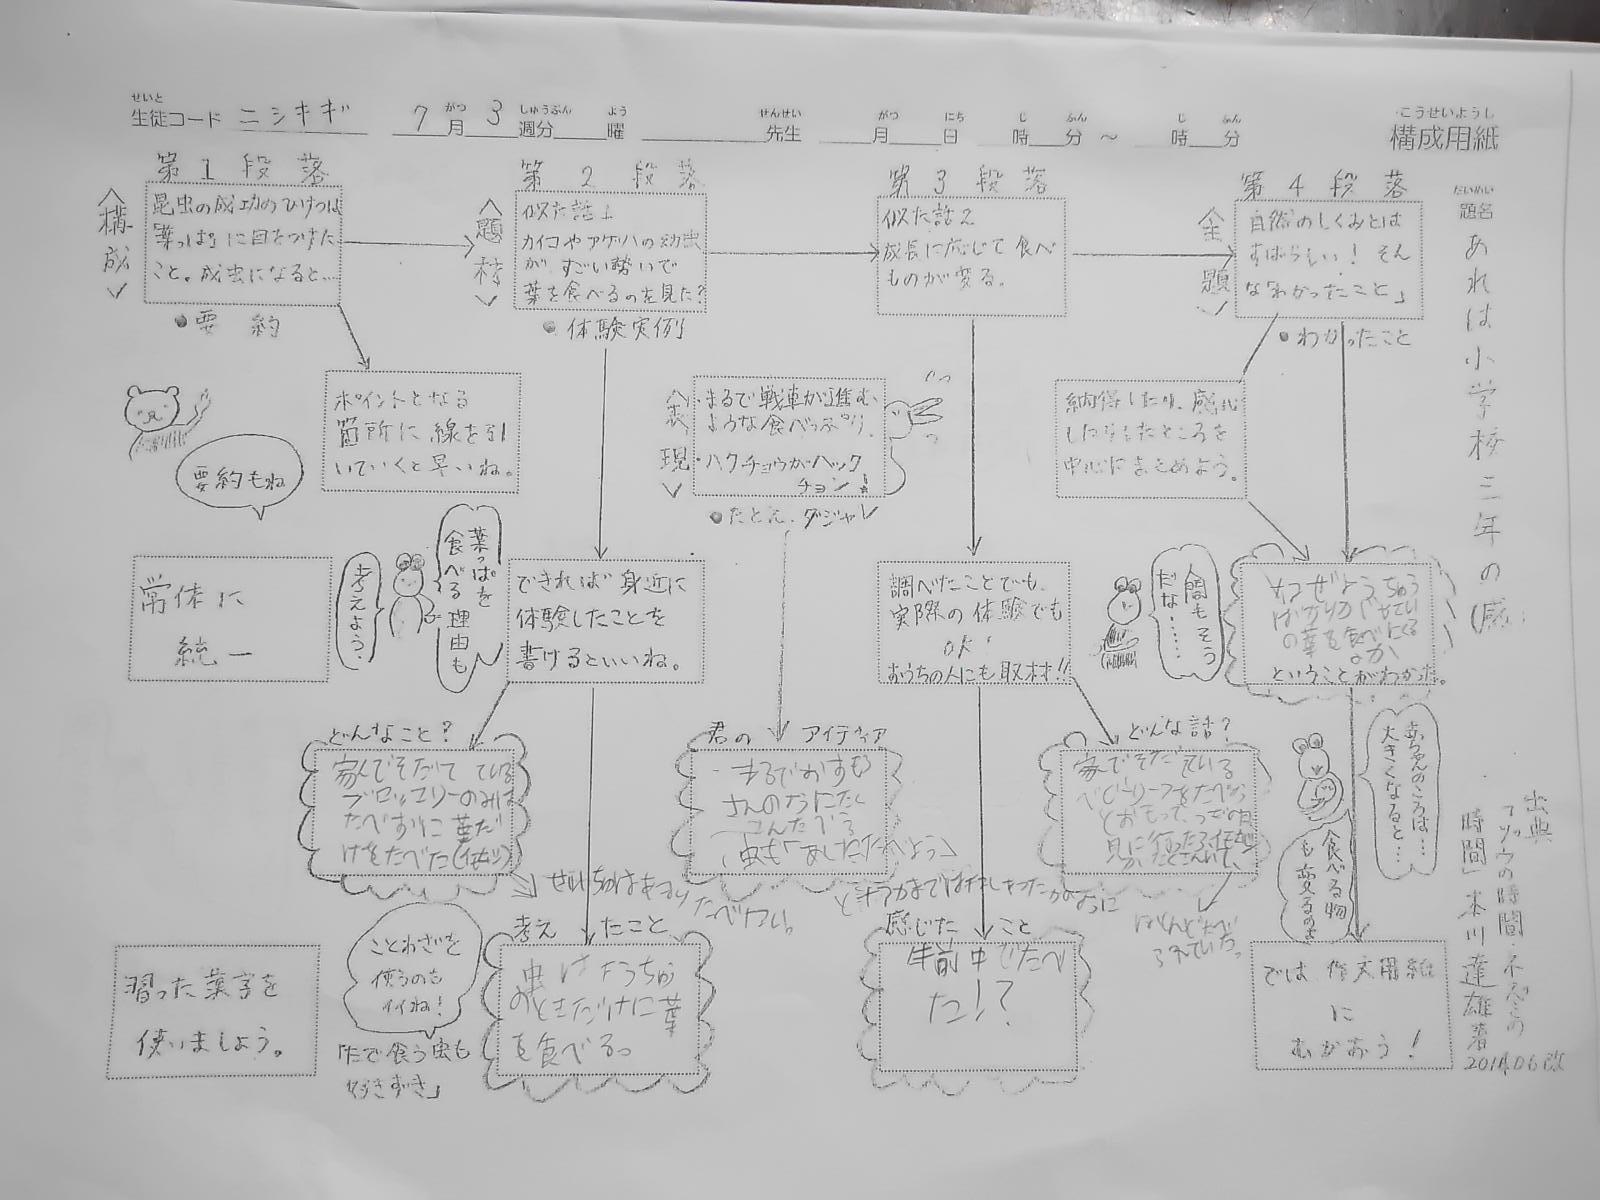 せいと がつ しゅうぶん よう せんせい がつ にち じ ふん じ ふん こうせいようし
生徒コード ニシキギ 7月 3週分 曜 先生 月 日 時 分 ～ 時 分 構成用紙
だいめい
題名
あれは小学校三年の(感
第1段落
〈構成〉
昆虫の成功のひけつは
「葉っぱ」に目をつけた
こと。成虫になると…
●要約
ポイントとなる
箇所に線を引
いていくと早いね。
要約もね
常体に
統一
習った漢字を
使いましょう。
第2段落
〈題材〉
似た話1
カイコやアゲハの幼虫
が、すごい勢いで
葉を食べるのを見た?
●体験実例
葉っぱを
食べる理由も
考えよう.
できれば身近に
体験したことを
書けるといいね。
どんなこと?
ブロッコリーのみは
たべずに葉だ
けをたべた
考えたこと
虫はようちゅう
のときだけに葉
を食べる。
ことわざを
使うのも
イイね!
「たで食う虫も
好きずき」
〈表現〉
・まるで戦車が進む
ような食べっぷり.
・ハクチョウがハック
チョン!
●たとえ.ダジャレ
君のアイディア
・まるでおすもう
さんのように
第3段落
似た話2
成長に応じて食べ
ものが変る。
調べたことでも、
実際の体験でも
OK!
おうちの人にも取材!!
人間もそう
だな……
どんな話?
家でそだている
ほとんどたべ
られていた。
感じたこと
午前中でたべ
た!?
第4段落
〈主題〉
自然のしくみとは
すばらしい! そん
な「わかったこと」
●わかったこと
納得したり、感心
したりしたところを
中心にまとめよう。
なぜようちゅう
ばかりが
の葉を食べたくる
なか
ということがわかった。
赤ちゃんのころは…
大きくなると…
食べる物
も変るのよ
では作文用紙
に
むかおう!
出典
「ゾウの時間・ネズミの
時間」本川達雄著
2014.06改